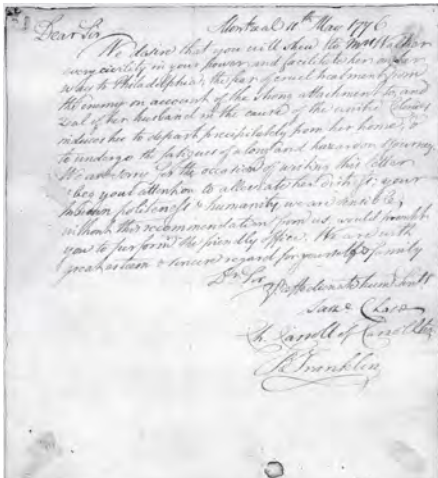 Montreal 11th May 1776
Dear Sir
We desire that you will shew the Mrs Walker
every civility in your power and facilitate her on her
way to Philadelphia; the fear of cruel treatment from
the enemy on account of the strong attachment to, and
zeal of her husband in the cause of the united Colonies
induces her to depart precipitately from her home, &
to undergo the fatigues of a long and hazardous journey.
We are sorry for the occasion of writing this letter
& beg your attention to alleviate her distress; your
known politeness & humanity, we are sensible,
without this recommendation from us, would prompt
you to perform the friendly office. We are with
great esteem & sincere regard for yourself & family
Dr Sir
Yr affectionate hum. Servts
Saml Chase
Ch. Carroll of Carrollton
B Franklin